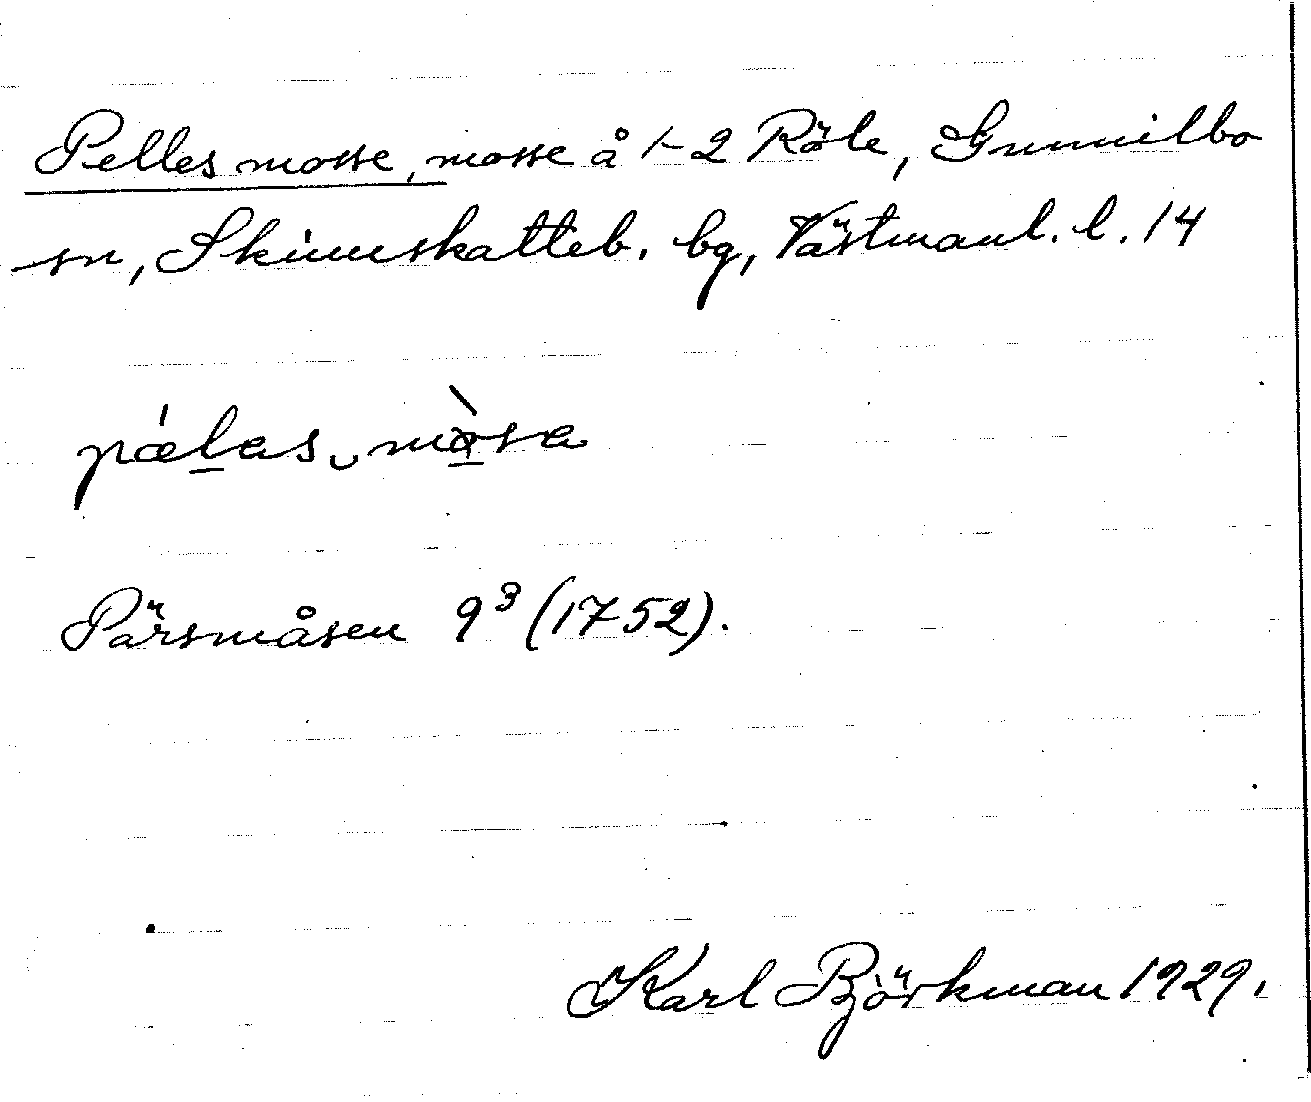 Pelles mosse, mosse å 1-2 Röle, Gunnilbo
sn, Skinnskatteb. bg, Västmanl. l. 14
pǽlas mòsa
Pärsmåsen 9³ (1752).
Karl Björkman 1929.